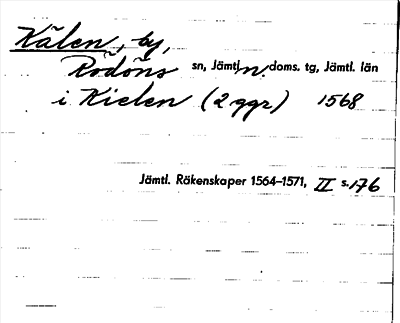 Kälen, by,
Rödöns sn, Jämtl. n. doms. tg, Jämtl. län
i Kielen (2 ggr) 1568
Jämtl. Räkenskaper 1564–1571, II s. 176